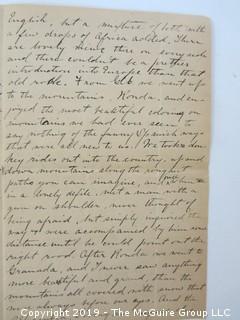 English, but a mixture of both with
a few drops of Africa added. There
are lovely views there on every side
and there couldn't be a prettier
introduction into Europe than that
old rock. From Gib we went up
to the mountains Ronda, and en-
joyed the most beautiful coloring on
mountains we had ever seen, to
say nothing of the funny Spanish ways
that were all new to us. We took don-
key rides out into the country, up and
down mountains along the roughest
paths you can imagine, and when
in a lonely defile, met a man with a
gun on shoulder never thought of
being afraid, but simply inquired the
way & were accompanied by him some
distance until he could point out the
right road. After Ronda we went to
Granada, and I never saw anything
more beautiful and grand, than the
mountains all covered with snow that
were always before our eyes. And the
Copyright 2019 - The McGuire Group LLC